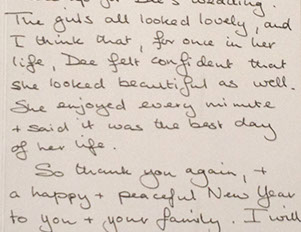 for Dee's wedding.
The girls all looked lovely, and
I think that, for once in her
life, Dee felt confident that
she looked beautiful as well.
She enjoyed every minute
+ said it was the best day
of her life.
So thank you again, +
a happy + peaceful New Year
to you + your family. I will